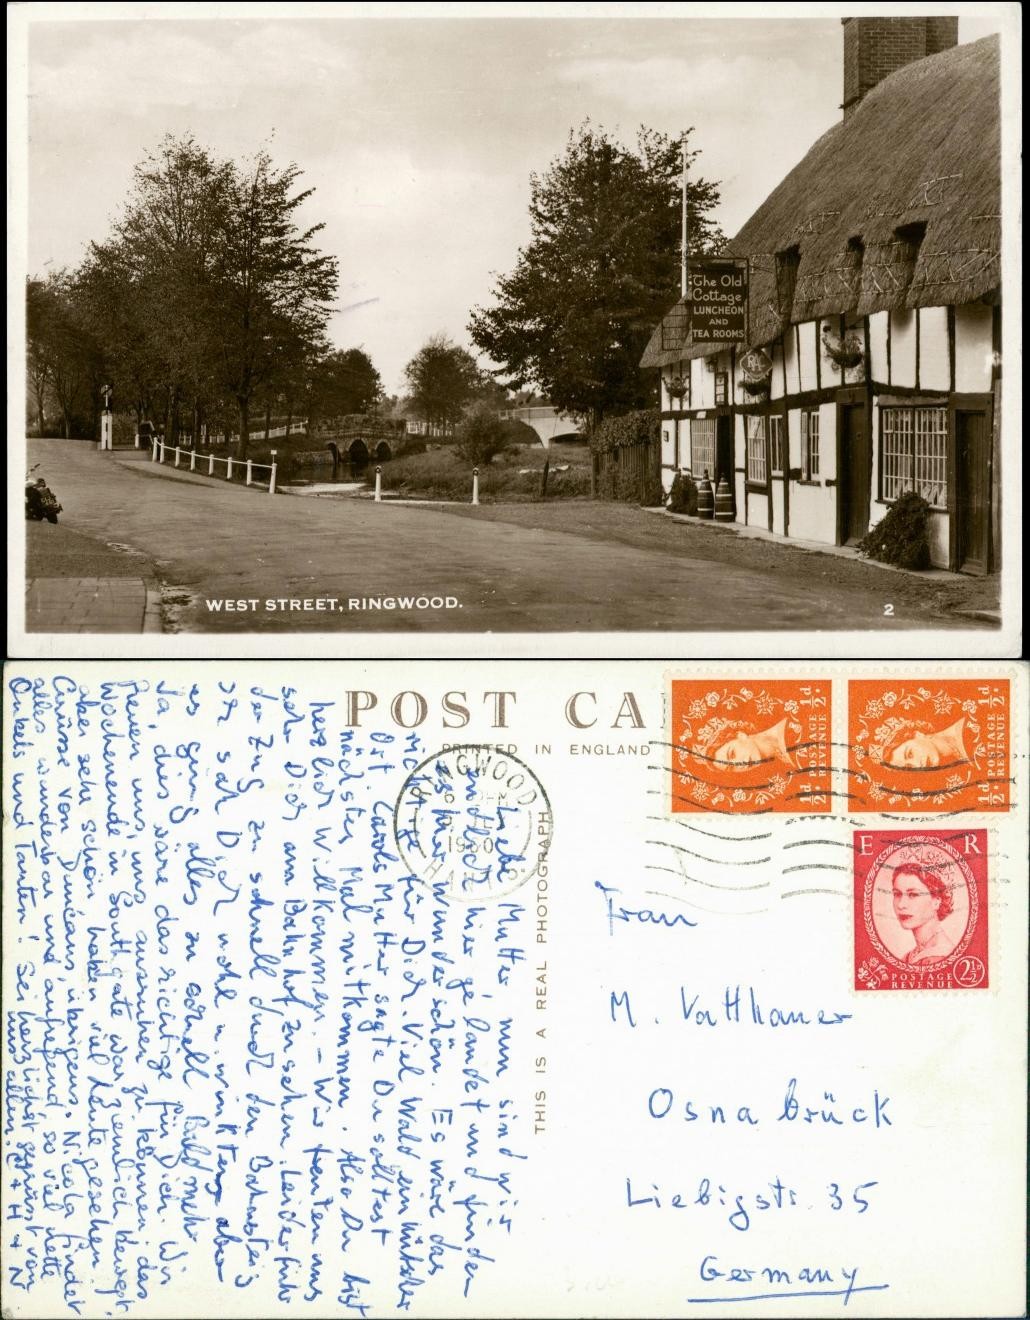 The Old
Cottage
LUNCHEON
AND
TEA ROOMS
WEST STREET, RINGWOOD.
2
POST CA
PRINTED IN ENGLAND
THIS IS A REAL PHOTOGRAPH
RINGWOOD
1960
HANTS.
½d
POSTAGE
REVENUE
½d
½d
POSTAGE
REVENUE
½d
E R
POSTAGE
REVENUE
2½d
Liebe Mutter, nun sind wir
endlich hier gelandet und finden
es hier wunderschön. Es wäre das
richtige für Dich. Viel Wald ein hübscher
Ort. Carols Mutter sagte Du solltest
nächstes Mal mitkommen. Also Du bist
herzlich Willkommen. – Wir freuten uns
sehr Dich am Bahnhof zu sehen. Leider fuhr
der Zug zu schnell durch den Bahnsteig
sah Dich wohl u. winkte aber
es ging alles zu schnell. Bald mehr
Ja, dies wäre das richtige für Dich. Wir
freuen uns, uns ausruhen zu können, das
Wochenende in Southgate war ziemlich bewegt,
aber sehr schön haben viel Leute gesehen
Grüsse von Duncans, übrigens. Nicola findet
alles wunderbar und aufregend, so viel nette
Onkels und Tanten! Sei herzlichst gegrüsst von
allen. C + H + N
Frau
M. Vatthauer
Osnabrück
Liebigstr. 35
Germany